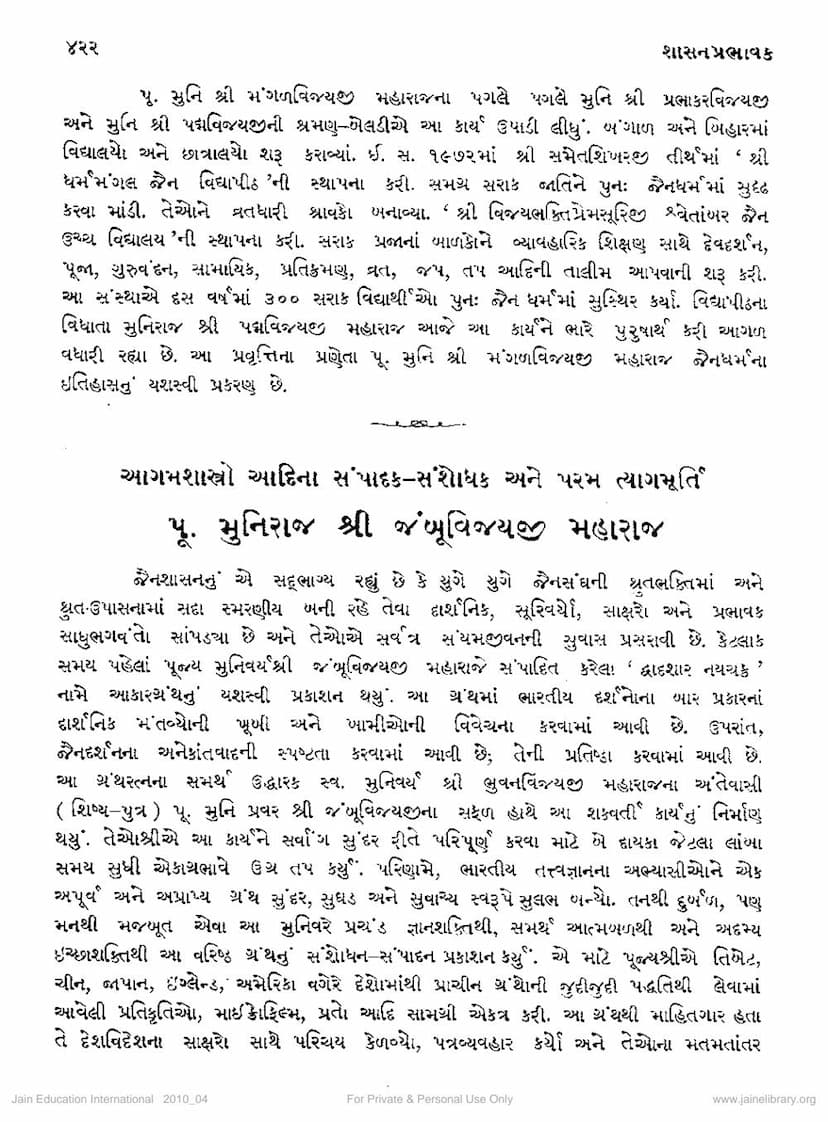 ૪૨૨ શાસનપ્રભાવક
પૂ. મુનિ શ્રી મંગળવિજયજી મહારાજના પગલે પગલે મુનિ શ્રી પ્રભાકરવિજયજી
અને મુનિ શ્રી પદ્મવિજયજીની શ્રમણ–બેલડીએ આ કાર્ય ઉપાડી લીધું. બંગાળ અને બિહારમાં
વિદ્યાલયો અને છાત્રાલયો શરૂ કરાવ્યાં. ઈ. સ. ૧૯૭૨માં શ્રી સમેતશિખરજી તીર્થમાં ‘ શ્રી
ધર્મમંગલ જૈન વિદ્યાપીઠ ’ની સ્થાપના કરી. સમગ્ર સરાક જાતિને પુનઃ જૈનધર્મમાં સુદૃઢ
કરવા માંડી. તેઓને વ્રતધારી શ્રાવકો બનાવ્યા. ‘ શ્રી વિજયભક્તિપ્રેમસૂરિજી શ્વેતાંબર જૈન
ઉચ્ચ વિદ્યાલય ’ની સ્થાપના કરી. સરાક પ્રજાનાં બાળકોને વ્યાવહારિક શિક્ષણ સાથે દેવદર્શન,
પૂજા, ગુરુવંદન, સામાયિક, પ્રતિક્રમણ, વ્રત, જપ, તપ આદિની તાલીમ આપવાની શરૂ કરી.
આ સંસ્થાએ દસ વર્ષમાં ૩૦૦ સરાક વિદ્યાર્થીઓ પુનઃ જૈન ધર્મમાં સુસ્થિર કર્યા. વિદ્યાપીઠના
વિધાતા મુનિરાજ શ્રી પદ્મવિજયજી મહારાજ આજે આ કાર્યને ભારે પુરુષાર્થ કરી આગળ
વધારી રહ્યા છે. આ પ્રવૃત્તિના પ્રણેતા પૂ. મુનિ શ્રી મંગળવિજયજી મહારાજ જૈનધર્મના
ઇતિહાસનું યશસ્વી પ્રકરણ છે.
આગમશાસ્ત્રો આદિના સંપાદક–સંશોધક અને પરમ ત્યાગમૂર્તિ
પૂ. મુનિરાજ શ્રી જંબૂવિજયજી મહારાજ
જૈનશાસનનું એ સદ્ભાગ્ય રહ્યું છે કે યુગે યુગે જૈનસંઘની શ્રુતભક્તિમાં અને
શ્રુત-ઉપાસનામાં સદા સ્મરણીય બની રહે તેવા દાર્શનિક, સૂરિવર્યો, સાક્ષરો અને પ્રભાવક
સાધુભગવંતો સાંપડ્યા છે અને તેઓએ સર્વત્ર સંયમજીવનની સુવાસ પ્રસરાવી છે. કેટલાક
સમય પહેલાં પૂજ્ય મુનિવર્યશ્રી જંબૂવિજયજી મહારાજે સંપાદિત કરેલા ‘ દ્વાદશાર નયચક્ર ’
નામે આકારગ્રંથનું યશસ્વી પ્રકાશન થયું. આ ગ્રંથમાં ભારતીય દર્શનોના બાર પ્રકારનાં
દાર્શનિક મંતવ્યોની ખૂબી અને ખામીઓની વિવેચના કરવામાં આવી છે. ઉપરાંત,
જૈનદર્શનના અનેકાંતવાદની સ્પષ્ટતા કરવામાં આવી છે; તેની પ્રતિષ્ઠા કરવામાં આવી છે.
આ ગ્રંથરત્નના સમર્થ ઉદ્ધારક સ્વ. મુનિવર્ય શ્રી ભુવનવિજયજી મહારાજના અંતેવાસી
( શિષ્ય-પુત્ર ) પૂ. મુનિ પ્રવર શ્રી જંબૂવિજયજીના સફળ હાથે આ શકવર્તી કાર્યનું નિર્માણ
થયું. તેઓશ્રીએ આ કાર્યને સર્વાંગ સુંદર રીતે પરિપૂર્ણ કરવા માટે બે દાયકા જેટલા લાંબા
સમય સુધી એકાગ્રભાવે ઉગ્ર તપ કર્યું. પરિણામે, ભારતીય તત્ત્વજ્ઞાનના અભ્યાસીઓને એક
અપૂર્વ અને અપ્રાપ્ય ગ્રંથ સુંદર, સુઘડ અને સુવાચ્ય સ્વરૂપે સુલભ બન્યો. તનથી દુર્બળ, પણ
મનથી મજબૂત એવા આ મુનિવરે પ્રચંડ જ્ઞાનશક્તિથી, સમર્થ આત્મબળથી અને અદમ્ય
ઇચ્છાશક્તિથી આ વરિષ્ઠ ગ્રંથનું સંશોધન–સંપાદન પ્રકાશન કર્યું. એ માટે પૂજ્યશ્રીએ તિબેટ,
ચીન, જાપાન, ઇંગ્લેન્ડ, અમેરિકા વગેરે દેશોમાંથી પ્રાચીન ગ્રંથોની જુદીજુદી પદ્ધતિથી લેવામાં
આવેલી પ્રતિકૃતિઓ, માઈક્રોફિલ્મ, પ્રતો આદિ સામગ્રી એકત્ર કરી. આ ગ્રંથથી માહિતગાર હતા
તે દેશવિદેશના સાક્ષરો સાથે પરિચય કેળવ્યો, પત્રવ્યવહાર કર્યો અને તેઓના મતમતાંતર
Jain Education International 2010_04 For Private & Personal Use Only www.jainelibrary.org